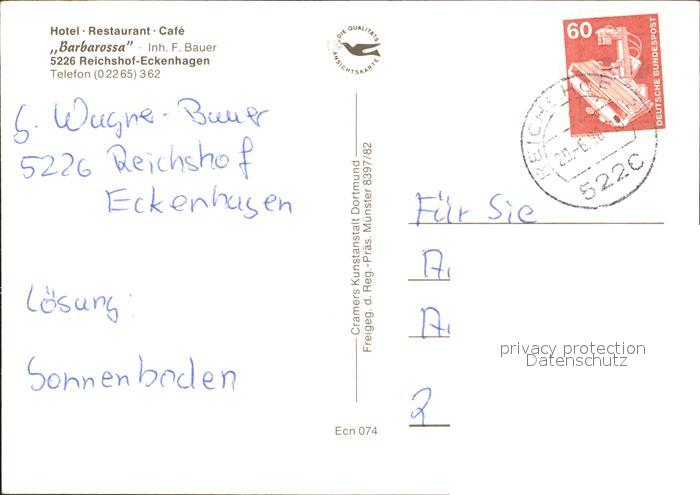 Hotel · Restaurant · Café
„Barbarossa" · Inh. F. Bauer
5226 Reichshof-Eckenhagen
Telefon (0 22 65) 3 62
DIE QUALITÄTS
ANSICHTSKARTE
60
DEUTSCHE BUNDESPOST
REICHSHOF
5226
G. Wagner-Bauer
5226 Reichshof
Eckenhagen
Lösung:
Sonnenboden
Cramers Kunstanstalt Dortmund
Freigeg. d. Reg.-Präs. Münster 8397/82
Ecn 074
Für Sie
A
A
2
privacy protection
Datenschutz